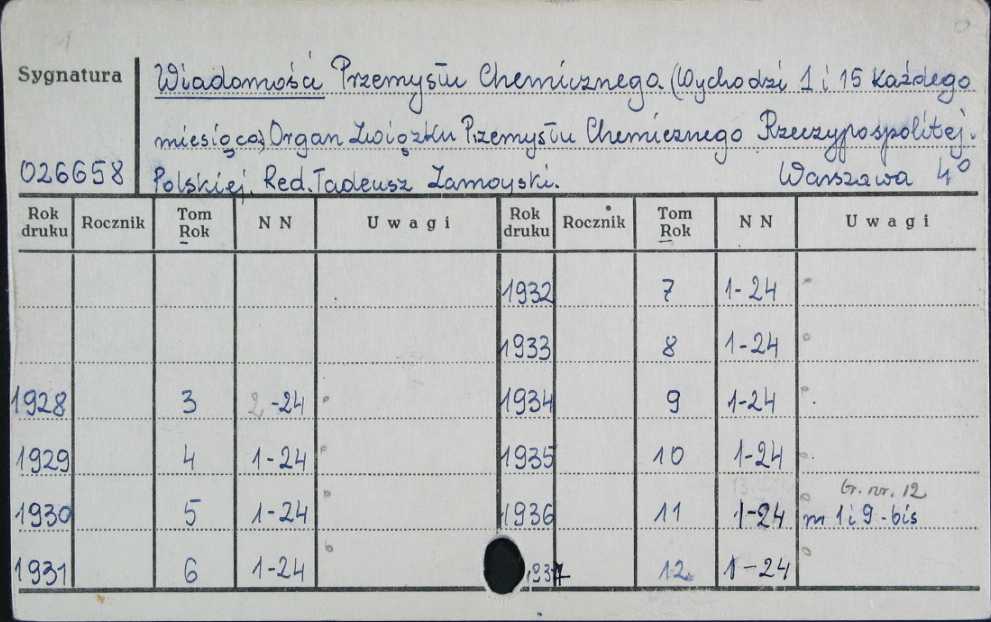 Sygnatura
Wiadomości Przemysłu Chemicznego. (Wychodzi 1 i 15 każdego
miesiąca) Organ Związku Przemysłu Chemicznego Rzeczypospolitej.
026658 Polskiej. Red. Tadeusz Zamoyski. Warszawa 4°
Rok druku Rocznik Tom Rok N N Uwagi Rok druku Rocznik Tom Rok N N Uwagi
1932 7 1-24
1933 8 1-24
1928 3 2-24 1934 9 1-24
1929 4 1-24 1935 10 1-24
1930 5 1-24 1936 11 1-24 br. nr. 12
n 1 i 9-bis
1931 6 1-24 1937 12 1-24